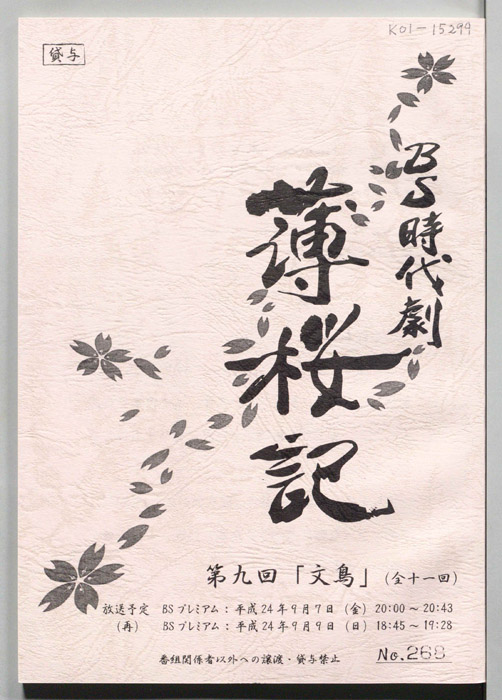 K01-15299
貸与
BS時代劇
薄桜記
第九回「文鳥」(全十一回)
放送予定 BSプレミアム:平成24年9月7日(金)20:00~20:43
(再) BSプレミアム:平成24年9月9日(日)18:45~19:28
番組関係者以外への譲渡・貸与禁止
No.268